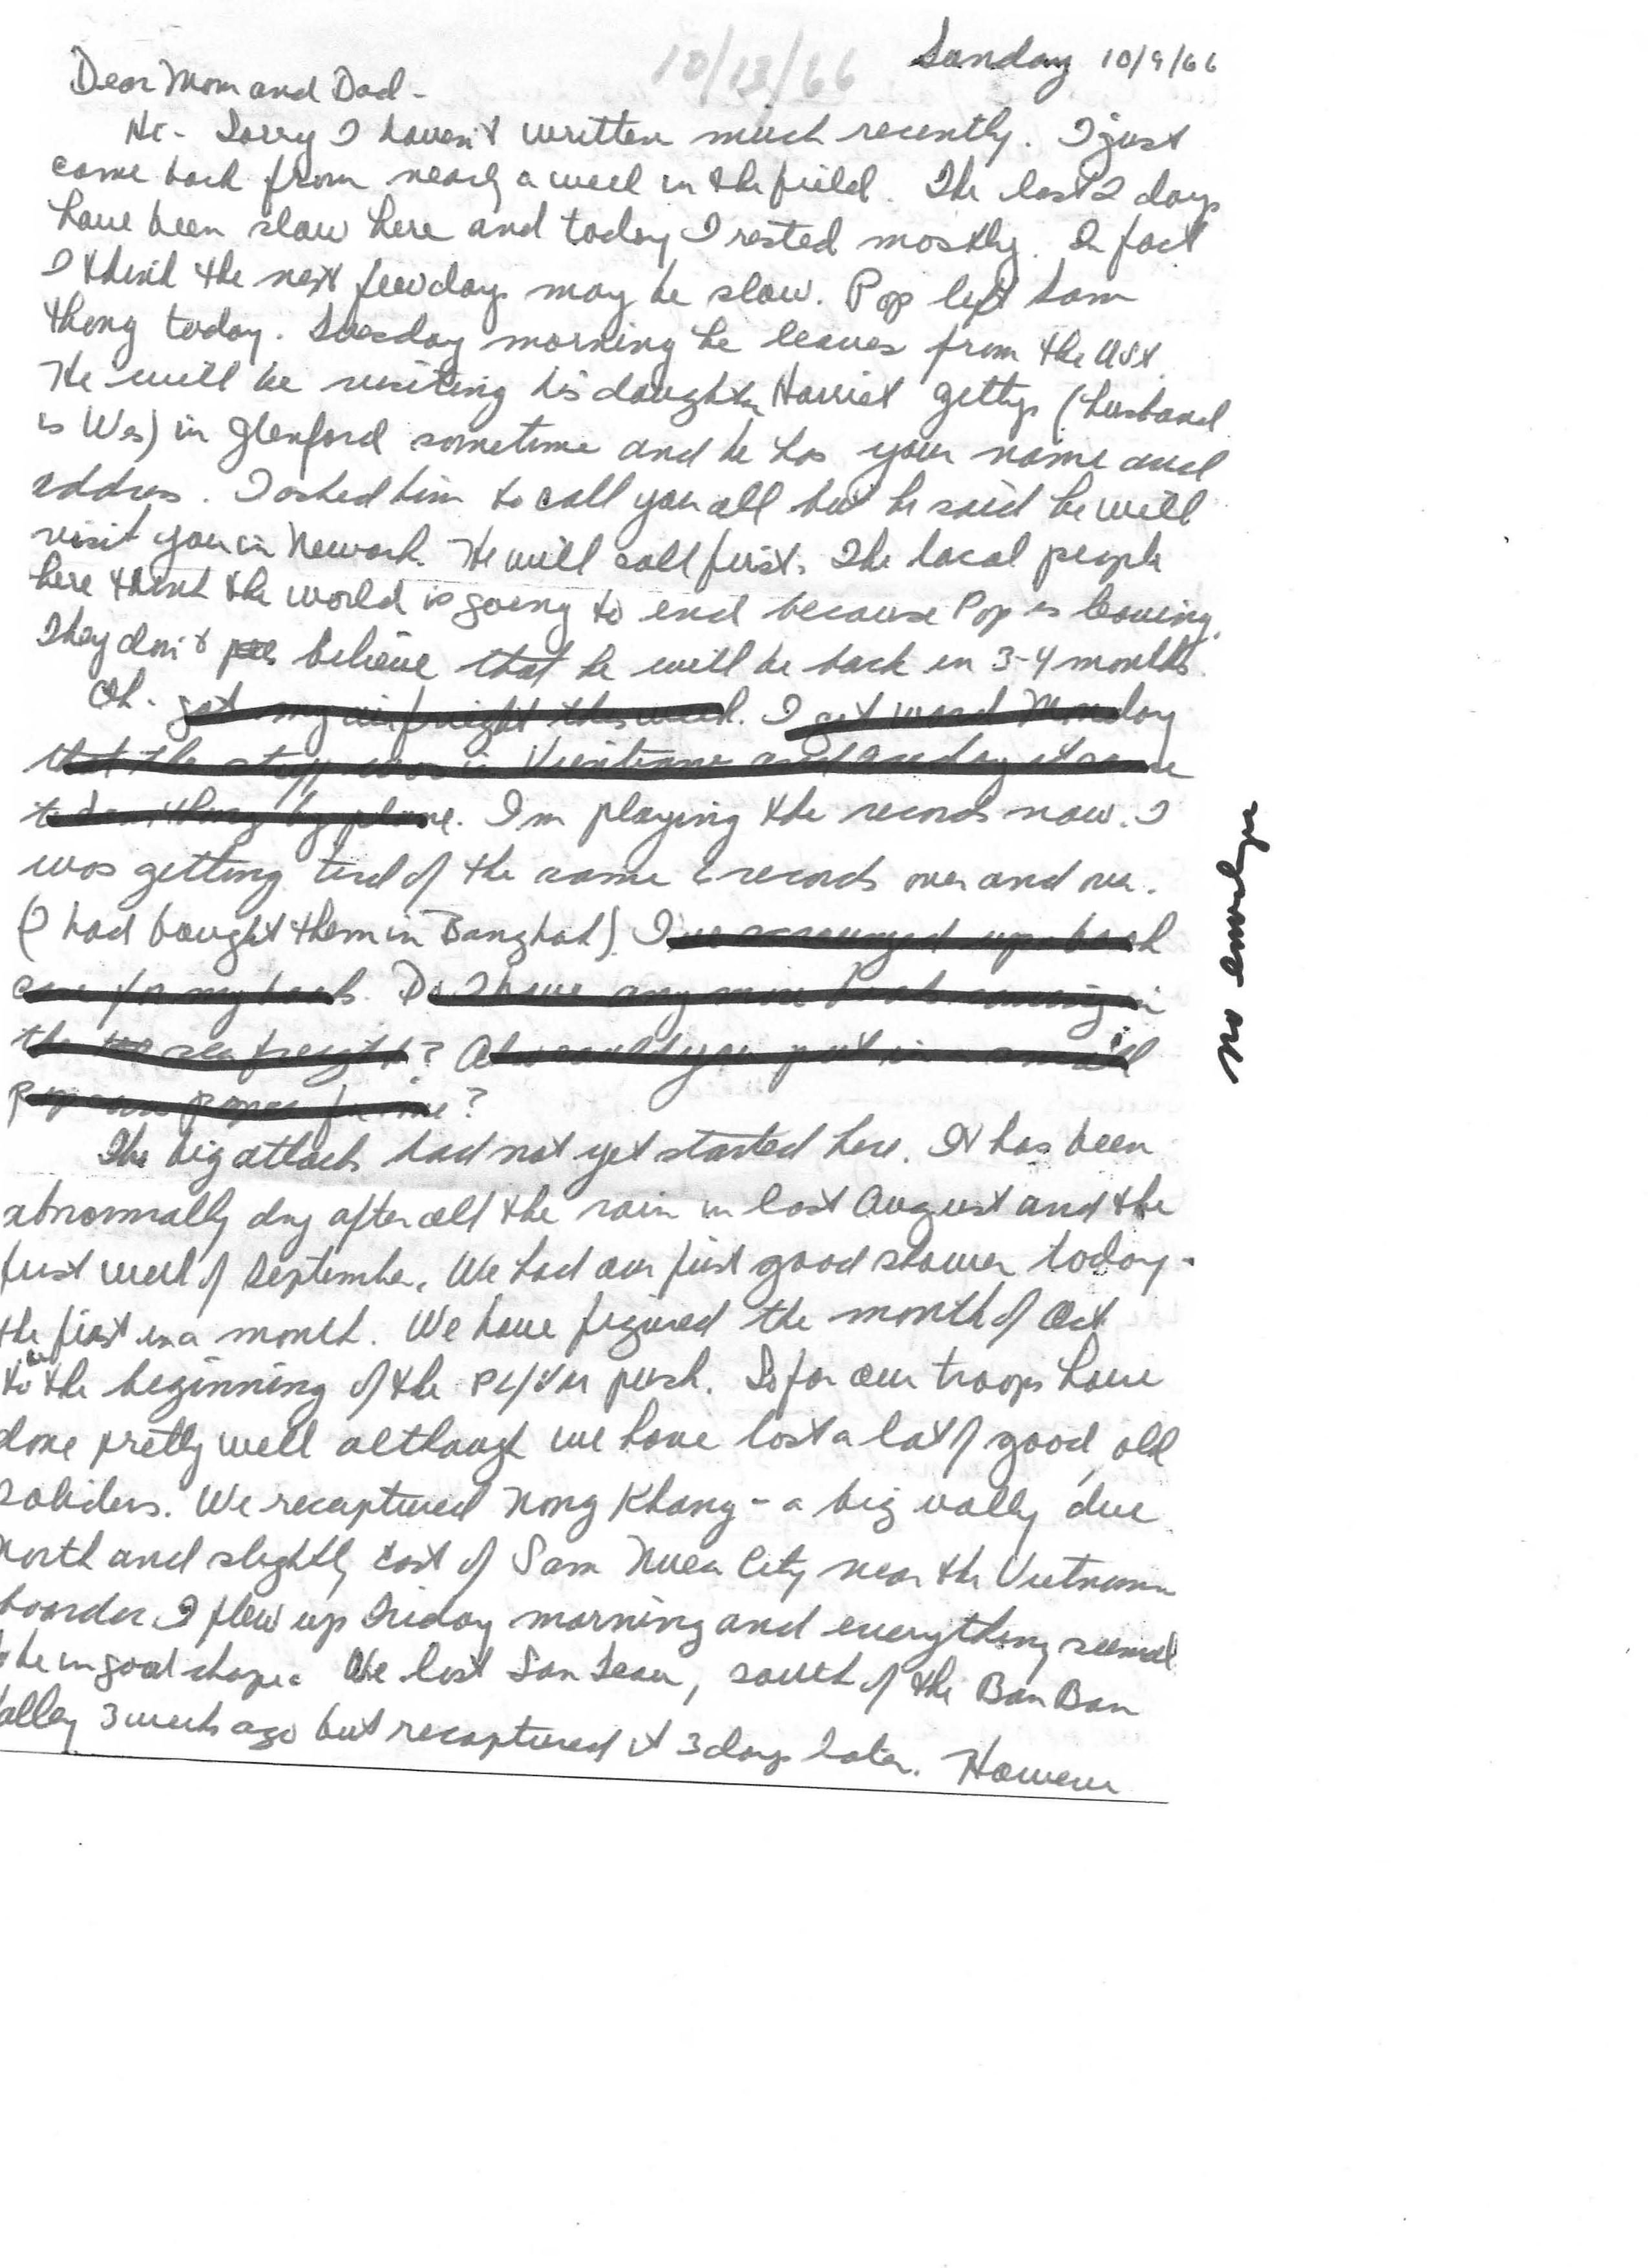 10/13/66
Sunday 10/9/66
Dear Mom and Dad -
Hi - Sorry I haven't written much recently. I just
came back from nearly a week in the field. The last 2 days
have been slow here and today I rested mostly. In fact
I think the next few days may be slow. Pop left Sam
thong today. Tuesday morning he leaves from the
He will be visiting his daughter Harriet Gettys (husband
is Wes) in Glenford sometime and he has your name and
address. I asked him to call you all but he said he will
visit you in Newark. He will call first. The local people
here think the world is going to end because Pop is leaving.
They don't believe that he will be back in 3-4 months.
Oh. got my air freight this week. I got word Monday
that the stuff was in Vientiane and Tuesday it came
to Sam thong by plane. I'm playing the records now. I
was getting tired of the same 6 records over and over.
(I had bought them in Bangkok). I've scrounged up a book
case for my books. Do I have any more books coming in
the sea freight? Also could you put in a small
pop corn popper for me?
The big attack had not yet started here. It has been
abnormally dry after all the rain in last August and the
first week of September. We had our first good shower today -
the first in a month. We have figured the month of Oct
to be the beginning of the PL/VM push. So far our troops have
done pretty well although we have lost a lot of good, old
soliders. We recaptured Nong Khang - a big vally due
north and slightly east of Sam Nuea City near the Vietnam
boarder I flew up Friday morning and everything seemed
be in good shape. We lost San Teau, south of the Ban Ban
alley 3 weeks ago but recaptured it 3 days later. However
no envelope